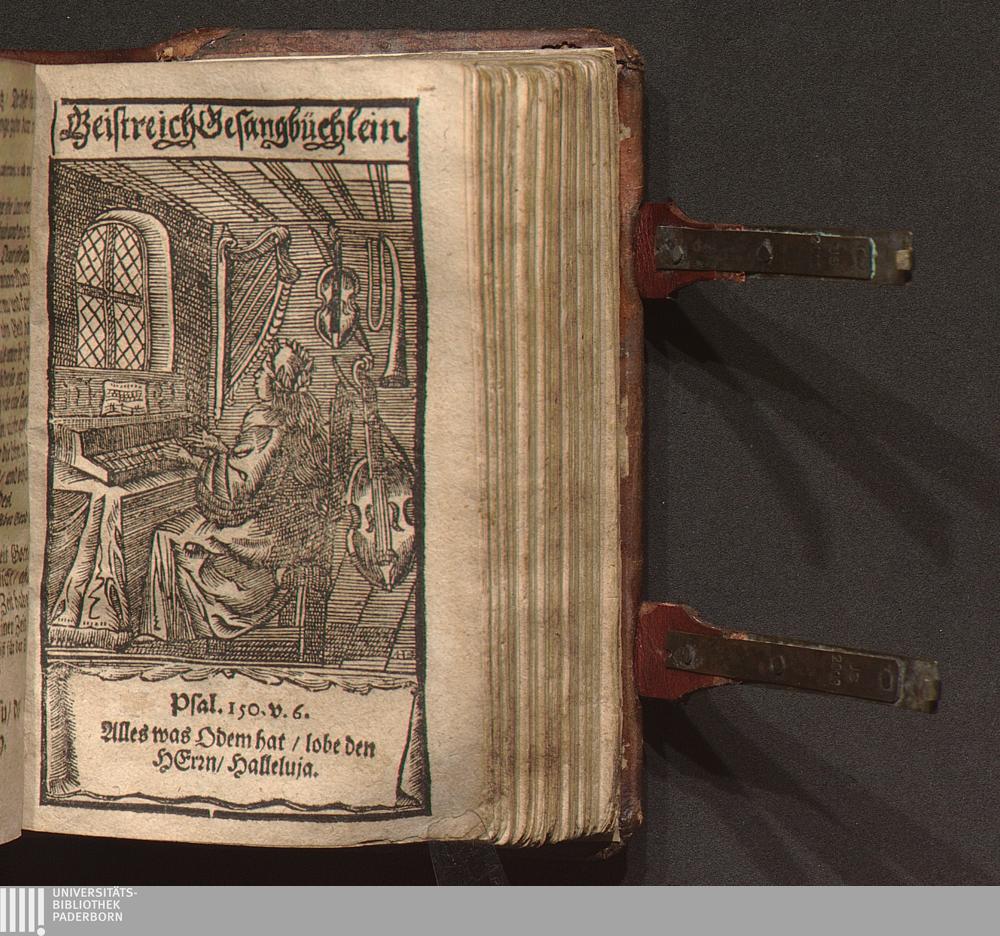 Geistreich Gesangbüchlein
Psal. 150. v. 6.
Alles was Odem hat / lobe den
HErrn / Halleluja.
UNIVERSITÄTS-
BIBLIOTHEK
PADERBORN